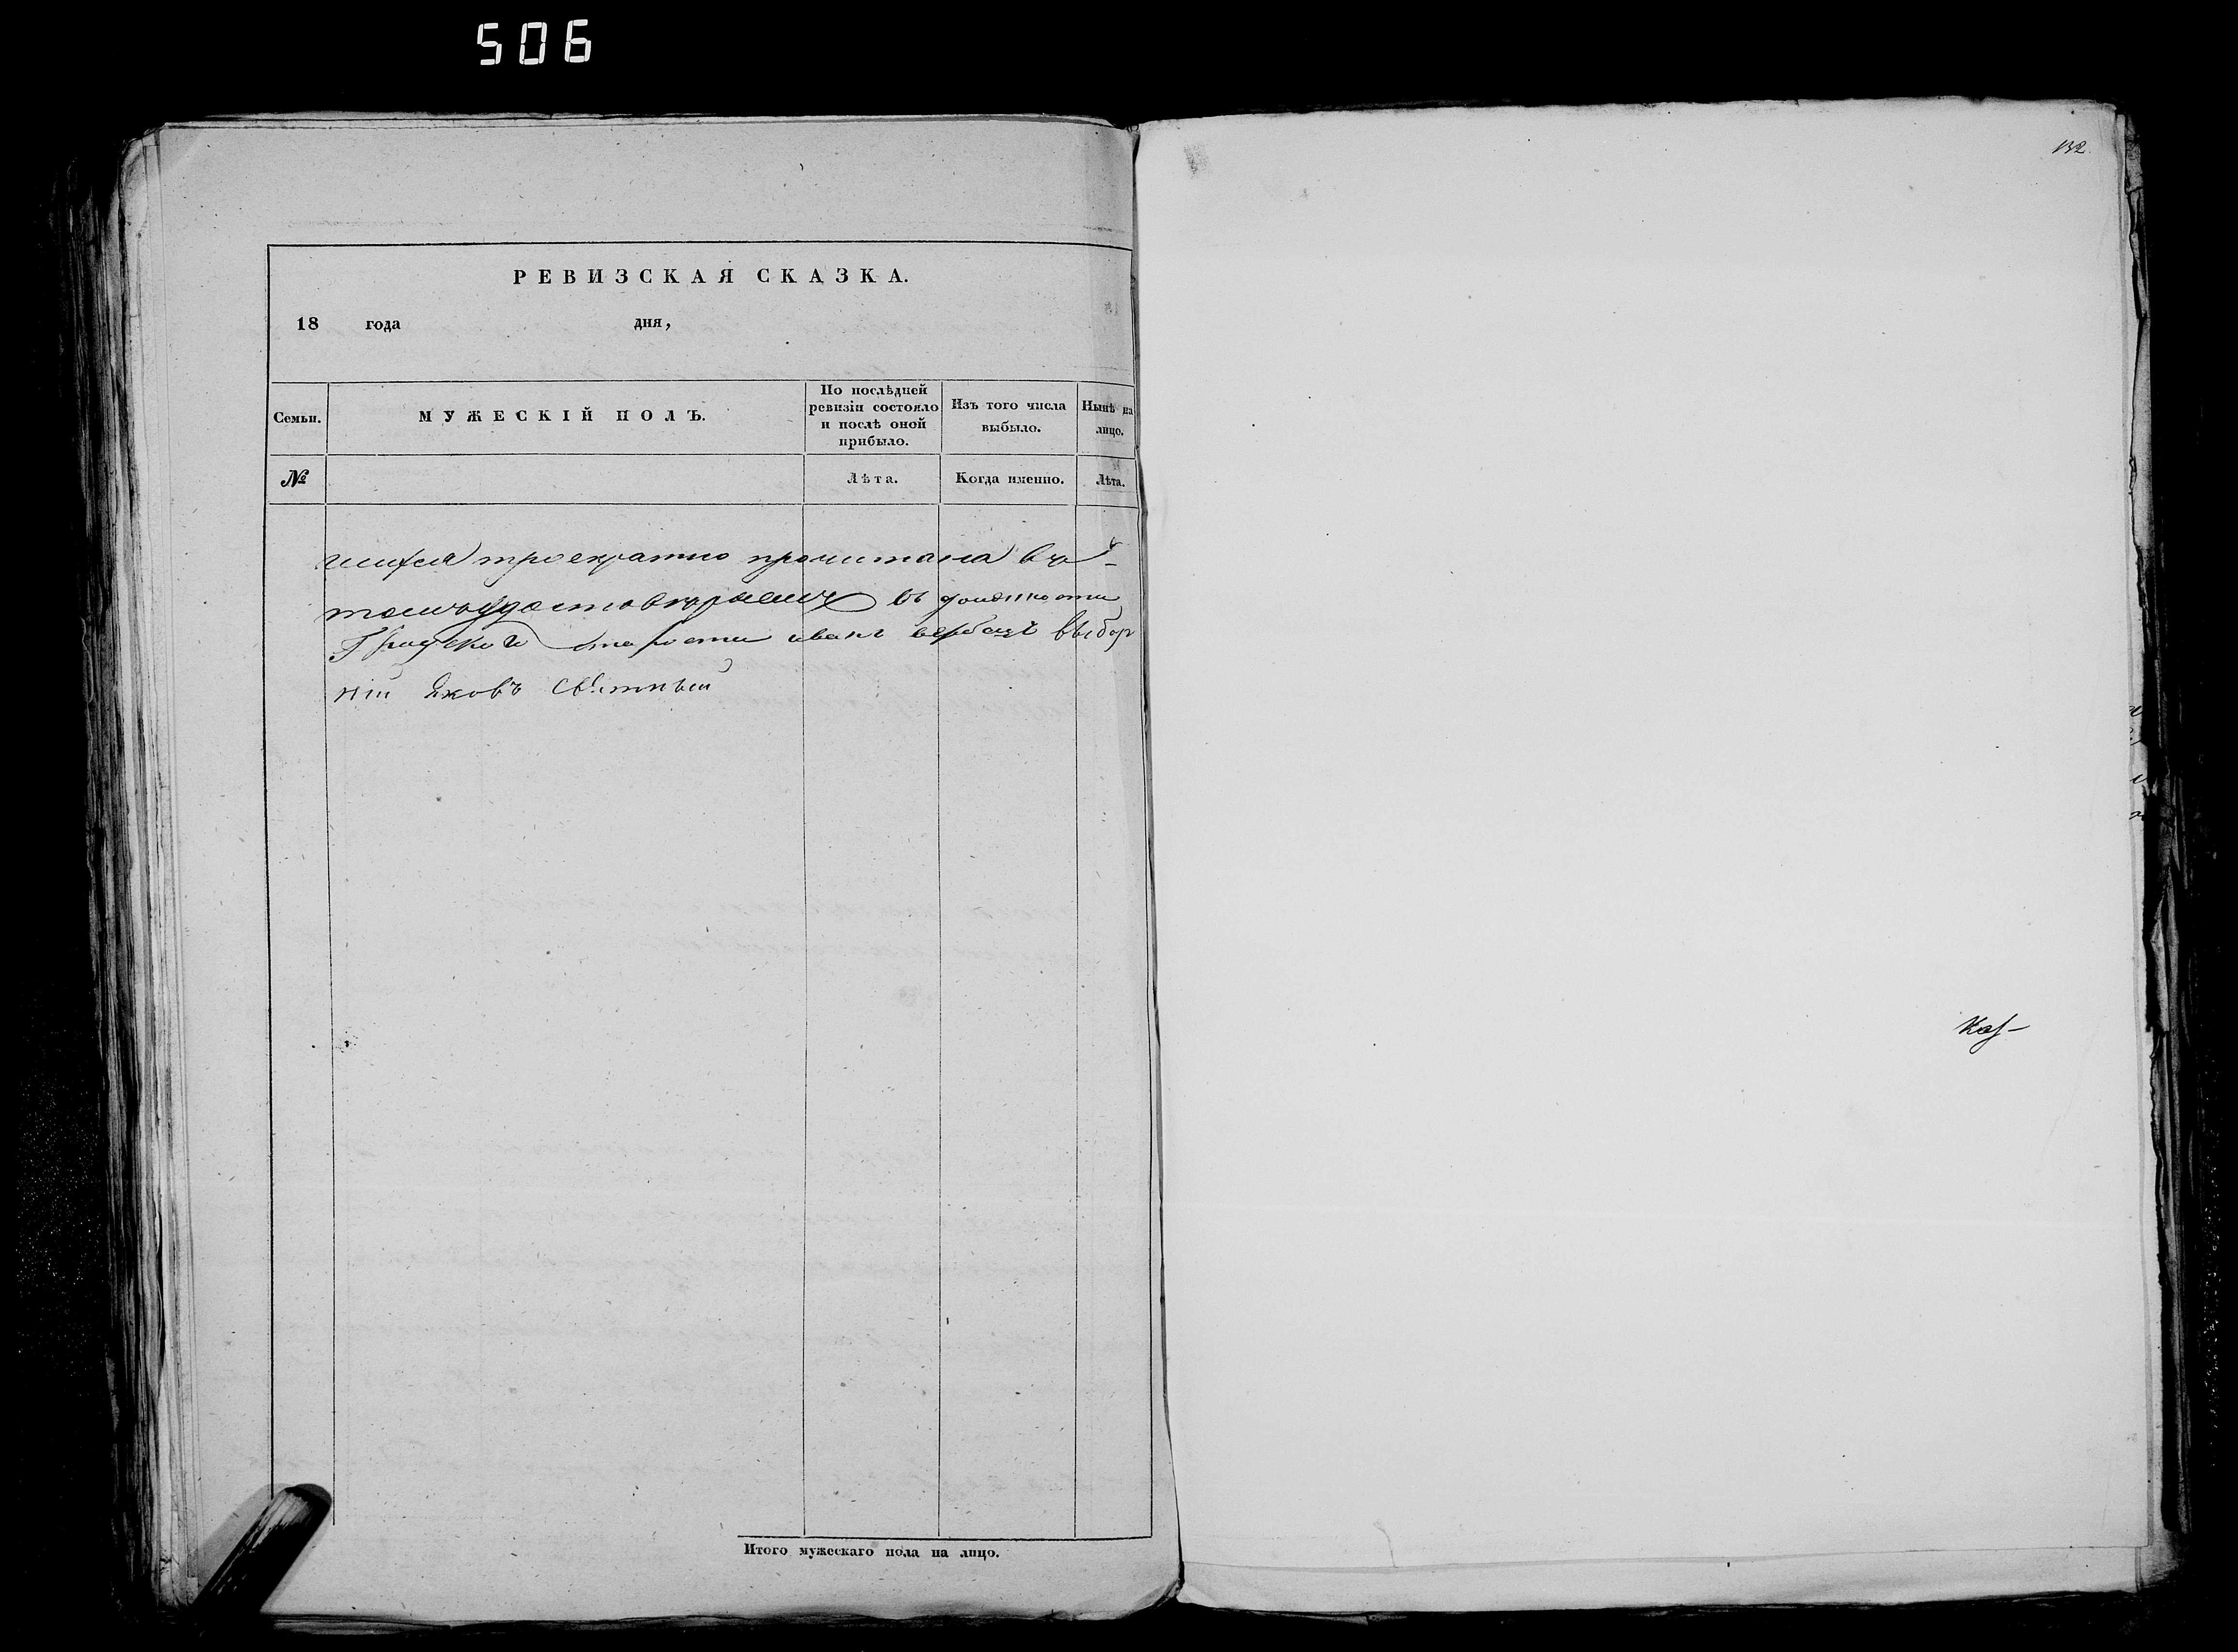 506
132
РЕВИЗСКАЯ СКАЗКА.
18 года дня,
Семьи. МУЖЕСКІЙ ПОЛЪ. По послѣдней ревизіи состояло и послѣ оной прибыло. Изъ того числа выбыло. Нынѣ на лицо.
№ Лѣта. Когда именно. Лѣта.
троекратно прочитана въ
томъ удостовѣряемъ
старости иванъ выбор
ній Яковъ
Итого мужескаго пола на лицо.